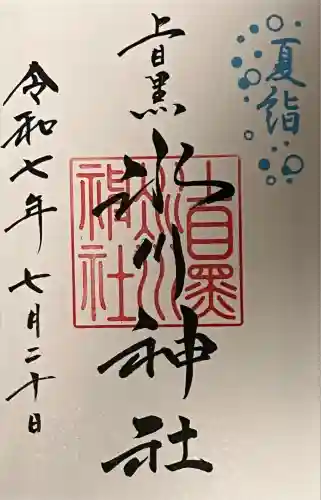 夏詣
上目黒
氷川神社
令和七年七月二十日
上目黒
氷川
神社